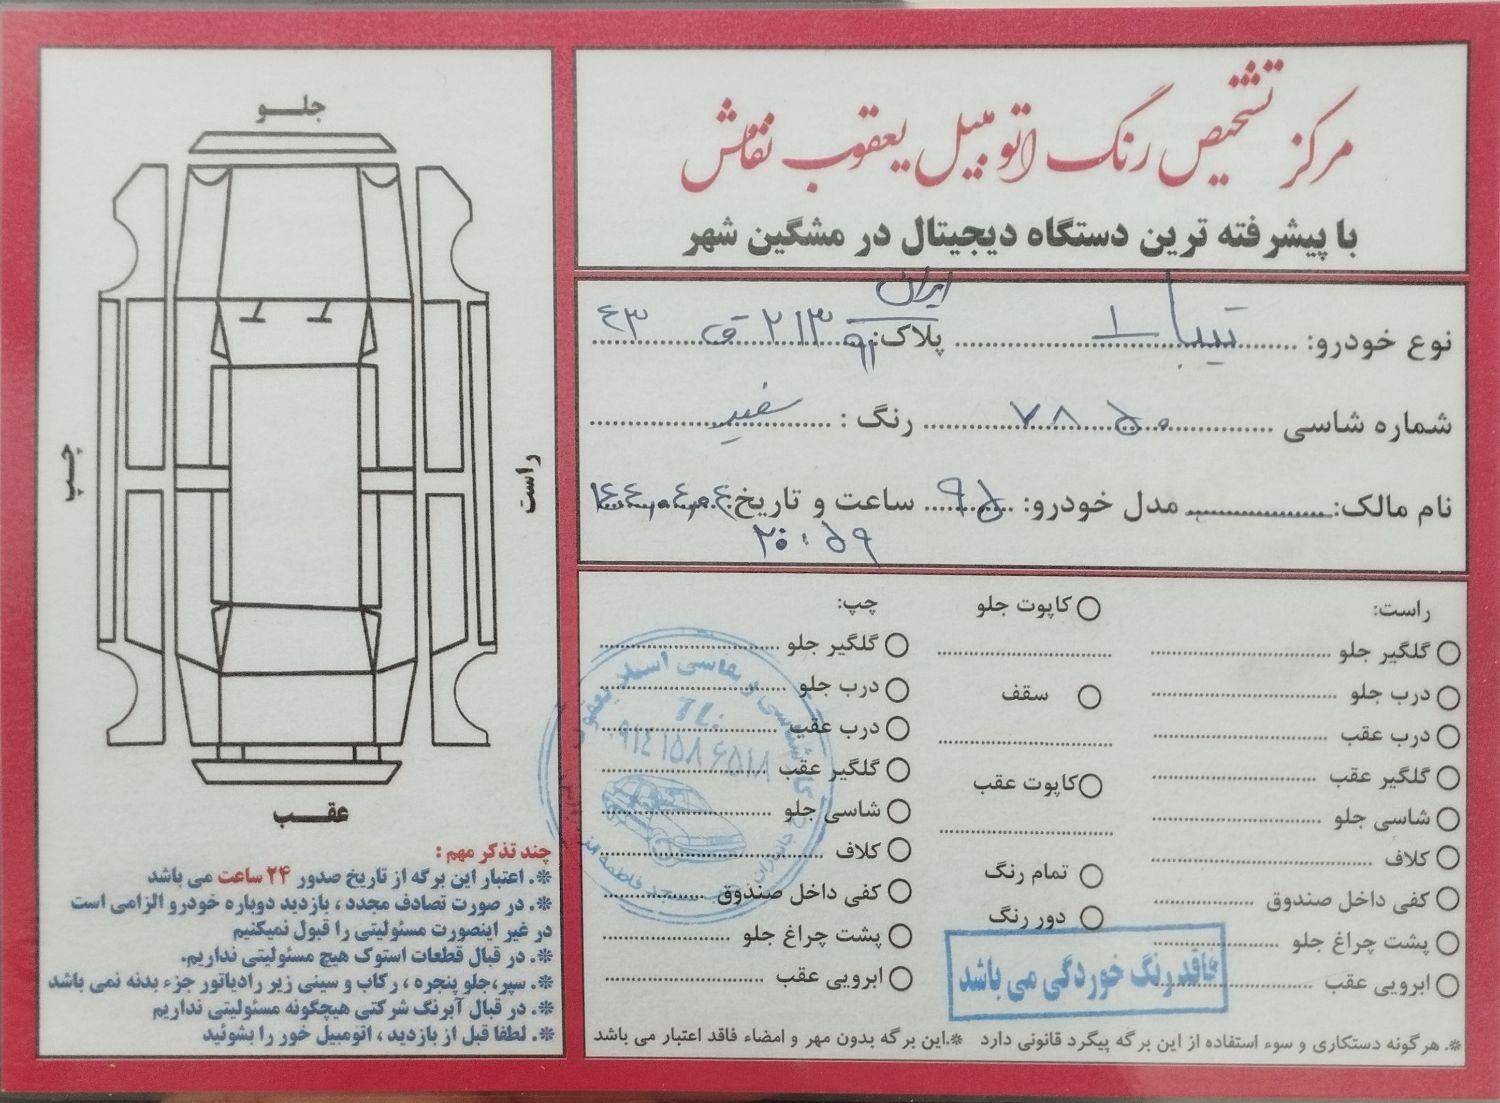 مرکز تشخیص رنگ اتومبیل یعقوب نقاش
با پیشرفته ترین دستگاه دیجیتال در مشگین شهر
نوع خودرو: تیبا ۱ پلاک: ایران ۹۱ ۲۱۳ ق ۴۳
شماره شاسی ۷۸۵۰ رنگ : سفید
نام مالک: مدل خودرو: ۹۵ ساعت و تاریخ:
۲۰:۵۹
راست:
گلگیر جلو
درب جلو
درب عقب
گلگیر عقب
شاسی جلو
کلاف
کفی داخل صندوق
پشت چراغ جلو
ابرویی عقب
کاپوت جلو
سقف
کاپوت عقب
تمام رنگ
دور رنگ
فاقد رنگ خوردگی می باشد
چپ:
گلگیر جلو
درب جلو
درب عقب
گلگیر عقب
شاسی جلو
کلاف
کفی داخل صندوق
پشت چراغ جلو
ابرویی عقب
۰۹۱۴ ۱۵۸ ۶۵۱۸
※. هرگونه دستکاری و سوء استفاده از این برگه پیگرد قانونی دارد ※.این برگه بدون مهر و امضاء فاقد اعتبار می باشد
جلو
چپ
راست
عقب
چند تذکر مهم :
※. اعتبار این برگه از تاریخ صدور ۲۴ ساعت می باشد
※. در صورت تصادف مجدد ، بازدید دوباره خودرو الزامی است
در غیر اینصورت مسئولیتی را قبول نمیکنیم
※. در قبال قطعات استوک هیچ مسئولیتی نداریم.
※. سپر،جلو پنجره ، رکاب و سینی زیر رادیاتور جزء بدنه نمی باشد
※. در قبال آبرنگ شرکتی هیچگونه مسئولیتی نداریم
※. لطفا قبل از بازدید ، اتومبیل خور را بشوئید